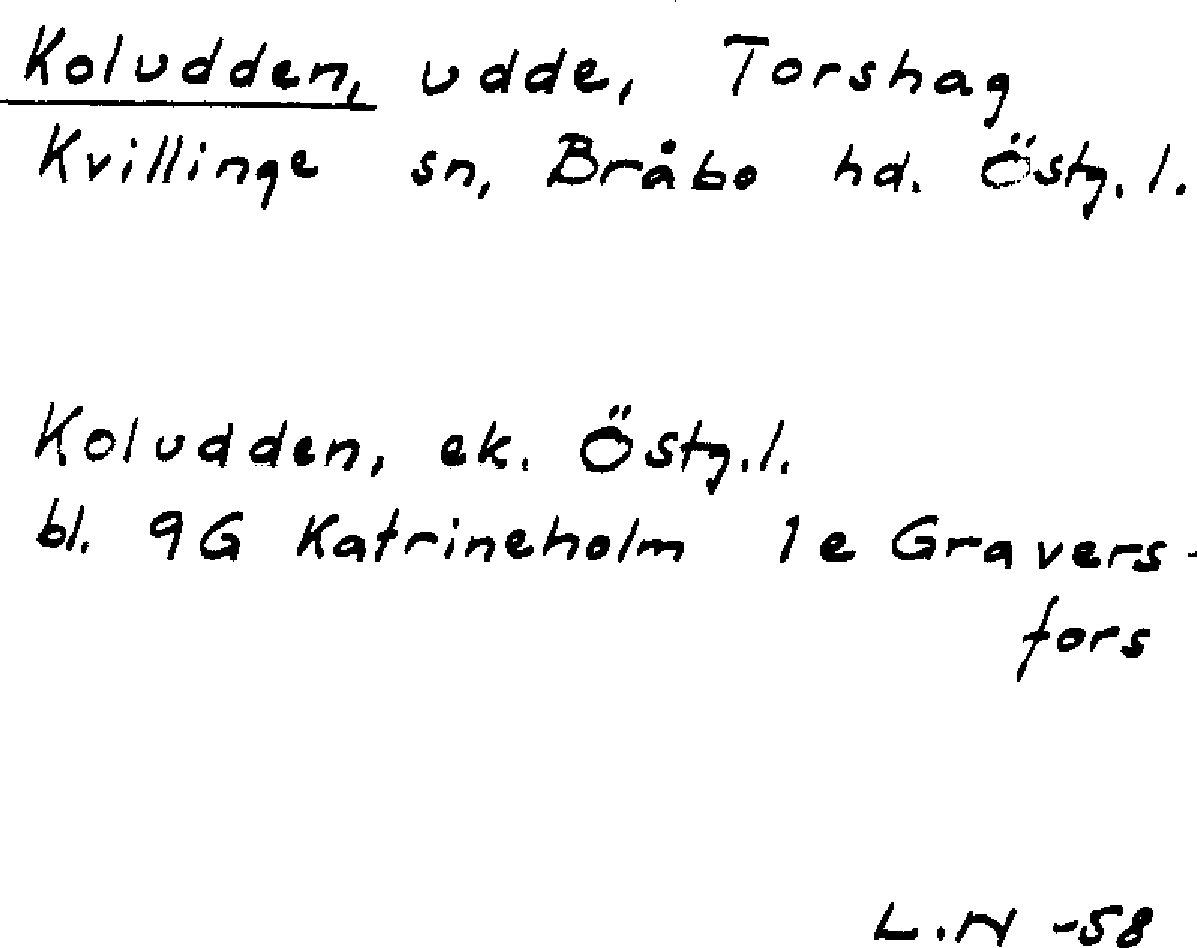 Koludden, udde, Torshag
Kvillinge sn, Bråbo hd. Östg. l.
Koludden, ek. Östg. l.
bl. 9G Katrineholm 1e Gravers-
fors
L.N -58